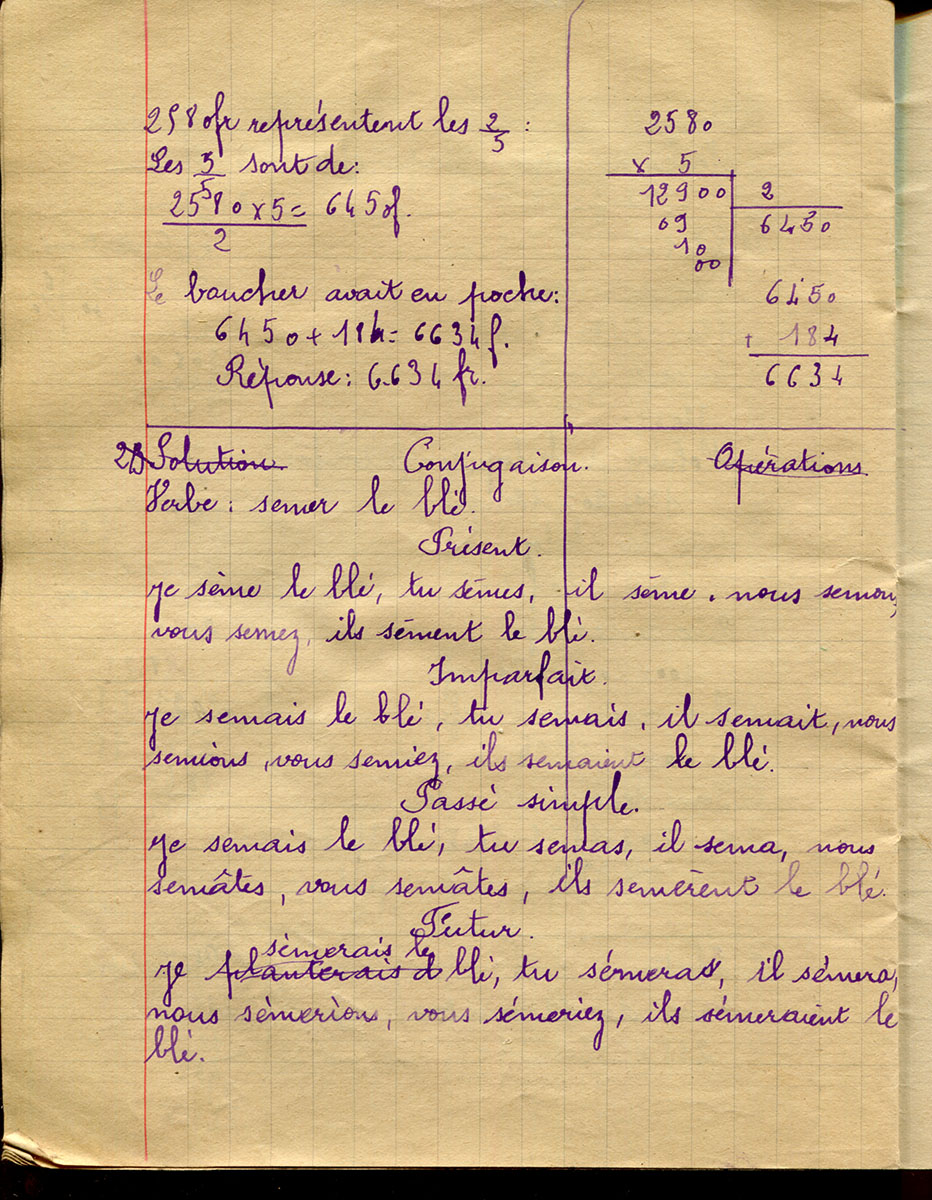 2580fr représentent les 2/5 :
Les 5/5 sont de:
2580 x 5 = 6450f.
2
Le boucher avait en poche:
6450 + 184 = 6634f.
Réponse: 6.634 fr.
2580
x 5
12900 2
09 6450
10
00
6450
+ 184
6634
Solution Conjugaison. Opérations
Verbe : semer le blé.
Présent.
Je sème le blé, tu sèmes, il sème, nous semons,
vous semez, ils sèment le blé.
Imparfait.
Je semais le blé, tu semais, il semait, nous
semions, vous semiez, ils semaient le blé.
Passé simple.
Je semais le blé, tu semas, il sema, nous
semâtes, vous semâtes, ils semèrent le blé.
Futur.
sèmerais le
Je planterais d blé, tu sémeras, il sémera,
nous sèmerions, vous sémeriez, ils sémeraient le
blé.